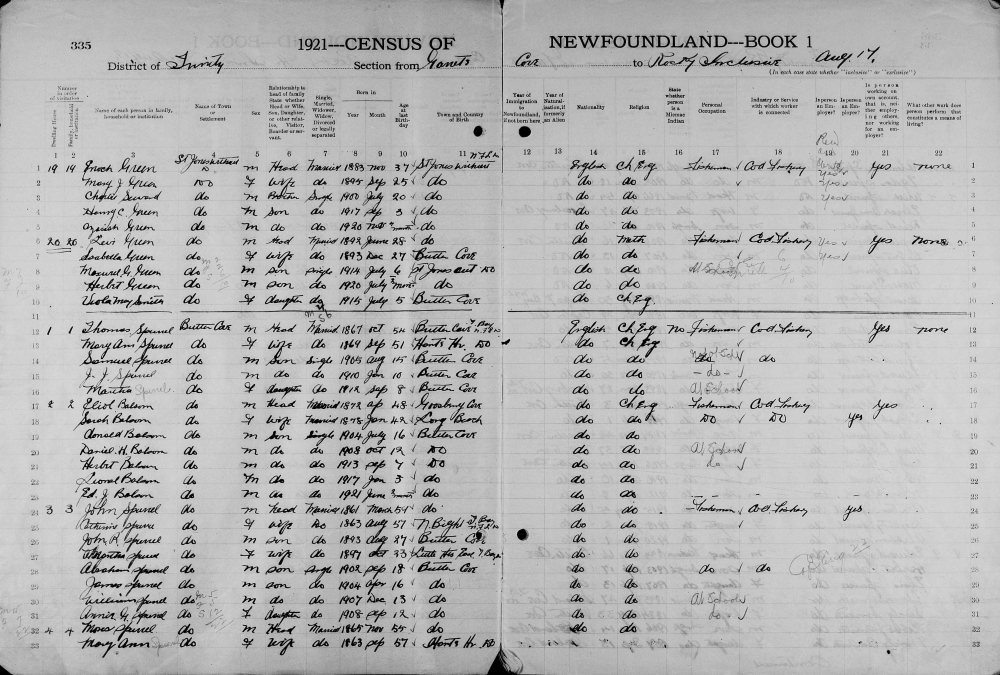 335
1921---CENSUS OF NEWFOUNDLAND---BOOK 1
District of Trinity Section from Cove to Rocky Inclusive Aug. 17.
(In each case state whether "inclusive" or "exclusive")
Number in order of visitation
Dwelling House
Family, household or institution
Name of each person in family, household or institution
Name of Town or Settlement
Sex
Relationship to head of family State whether Head or Wife, Son, Daughter, or other relative, Visitor, Boarder or servant.
Single, Married, Widower, Widow, Divorced or legally separated
Born in
Year Month
Age at last Birthday
Town and Country of Birth
Year of Immigration to Newfoundland, if not born here
Year of Naturalisation, if formerly an Alien
Nationality
Religion
State whether person is a Micmac Indian
Personal Occupation
Industry or Service with which worker is connected
Is person an Employer?
Is person an Employee?
Is person working on own account, that is, neither employing others, nor working for an employer?
What other work does person perform that constitutes a means of living?
1 2 3 4 5 6 7 8 9 10 11 12 13 14 15 16 17 18 19 20 21 22
1 19 19 Enoch Green m Head Married 1883 Nov 37 English Ch Eng Fisherman Cod Fishery yes none 1
2 Mary J Green Do F Wife do 1895 Sep 25 do do do 2
3 Charles Seward do m Single 1900 July 20 do do do 3
4 Henry C. Green do m Son do 1917 Sep 3 do do do 4
5 Green do m do do 1920 do do do 5
6 20 20 Green do m Head Married 1892 June 28 do do Meth Fisherman Cod Fishery yes none 6
7 Isabella Green do F Wife do 1893 Dec 27 Butter Cove do do 7
8 Maxwell G Green do m Son Single 1914 July 6 do do 8
9 Herbert Green do m Son do 1920 July do do do 9
10 Viola May Smith do F daughter do 1915 July 5 Butter Cove do Ch Eng 10
11 11
12 1 1 Thomas Spurrel Butter Cove m Head Married 1867 Oct 54 Butter Cove English Ch Eng no Fisherman Cod Fishery yes none 12
13 Mary Ann Spurrel do F Wife do 1869 Sep 51 Hants Hr. Do do Ch Eng 13
14 Samuel Spurrel do m Son Single 1905 Aug 15 Butter Cove do do do do 14
15 J. J. Spurrel do m do do 1910 Jan 10 Butter Cove do do do 15
16 Martha Spurrel do F daughter do 1912 Sep 8 Butter Cove do do At School 16
17 2 2 Eliol Balsom do m Head Married 1872 Sep 48 Goosbury Cove do Ch Eng Fisherman Cod Fishery yes 17
18 Sarah Balsom do F Wife Married 1878 Jan 42 Long Beach do do Do Do yes 18
19 Donald Balsom do m Son Single 1904 July 16 Butter Cove do do 19
20 Daniel H. Balsom do m do do 1908 Oct 12 Do do do At School 20
21 Herbert Balsom do m do do 1913 Sep 7 Do do do do 21
22 Lional Balsom do m do do 1917 Jan 3 do do do 22
23 Ed. J. Balsom do m do do 1921 June do do do 23
24 3 3 John Spurrel do m Head Married 1861 March 59 do do do Fisherman Cod Fishery yes 24
25 Spurrel do F Wife Do 1863 Aug 57 N Bight do do 25
26 John R Spurrel do m Son do 1893 Aug 27 Butter Cove do do 26
27 Spurrel do F Wife do 1897 Oct 23 do do 27
28 Abraham Spurrel do m Son Single 1902 Sep 18 Butter Cove do do do do 28
29 James Spurrel do m Son do 1904 Apr 16 do do do 29
30 William Spurrel do m do do 1907 Dec 13 do do do At School 30
31 Annie G. Spurrel do F daughter do 1908 Sep 12 do do do do 31
32 4 4 Moses Spurrel do m Head Married 1865 Nov 55 do do do 32
33 Mary Ann do F Wife do 1863 Sep 57 Hants Hr. Do 33